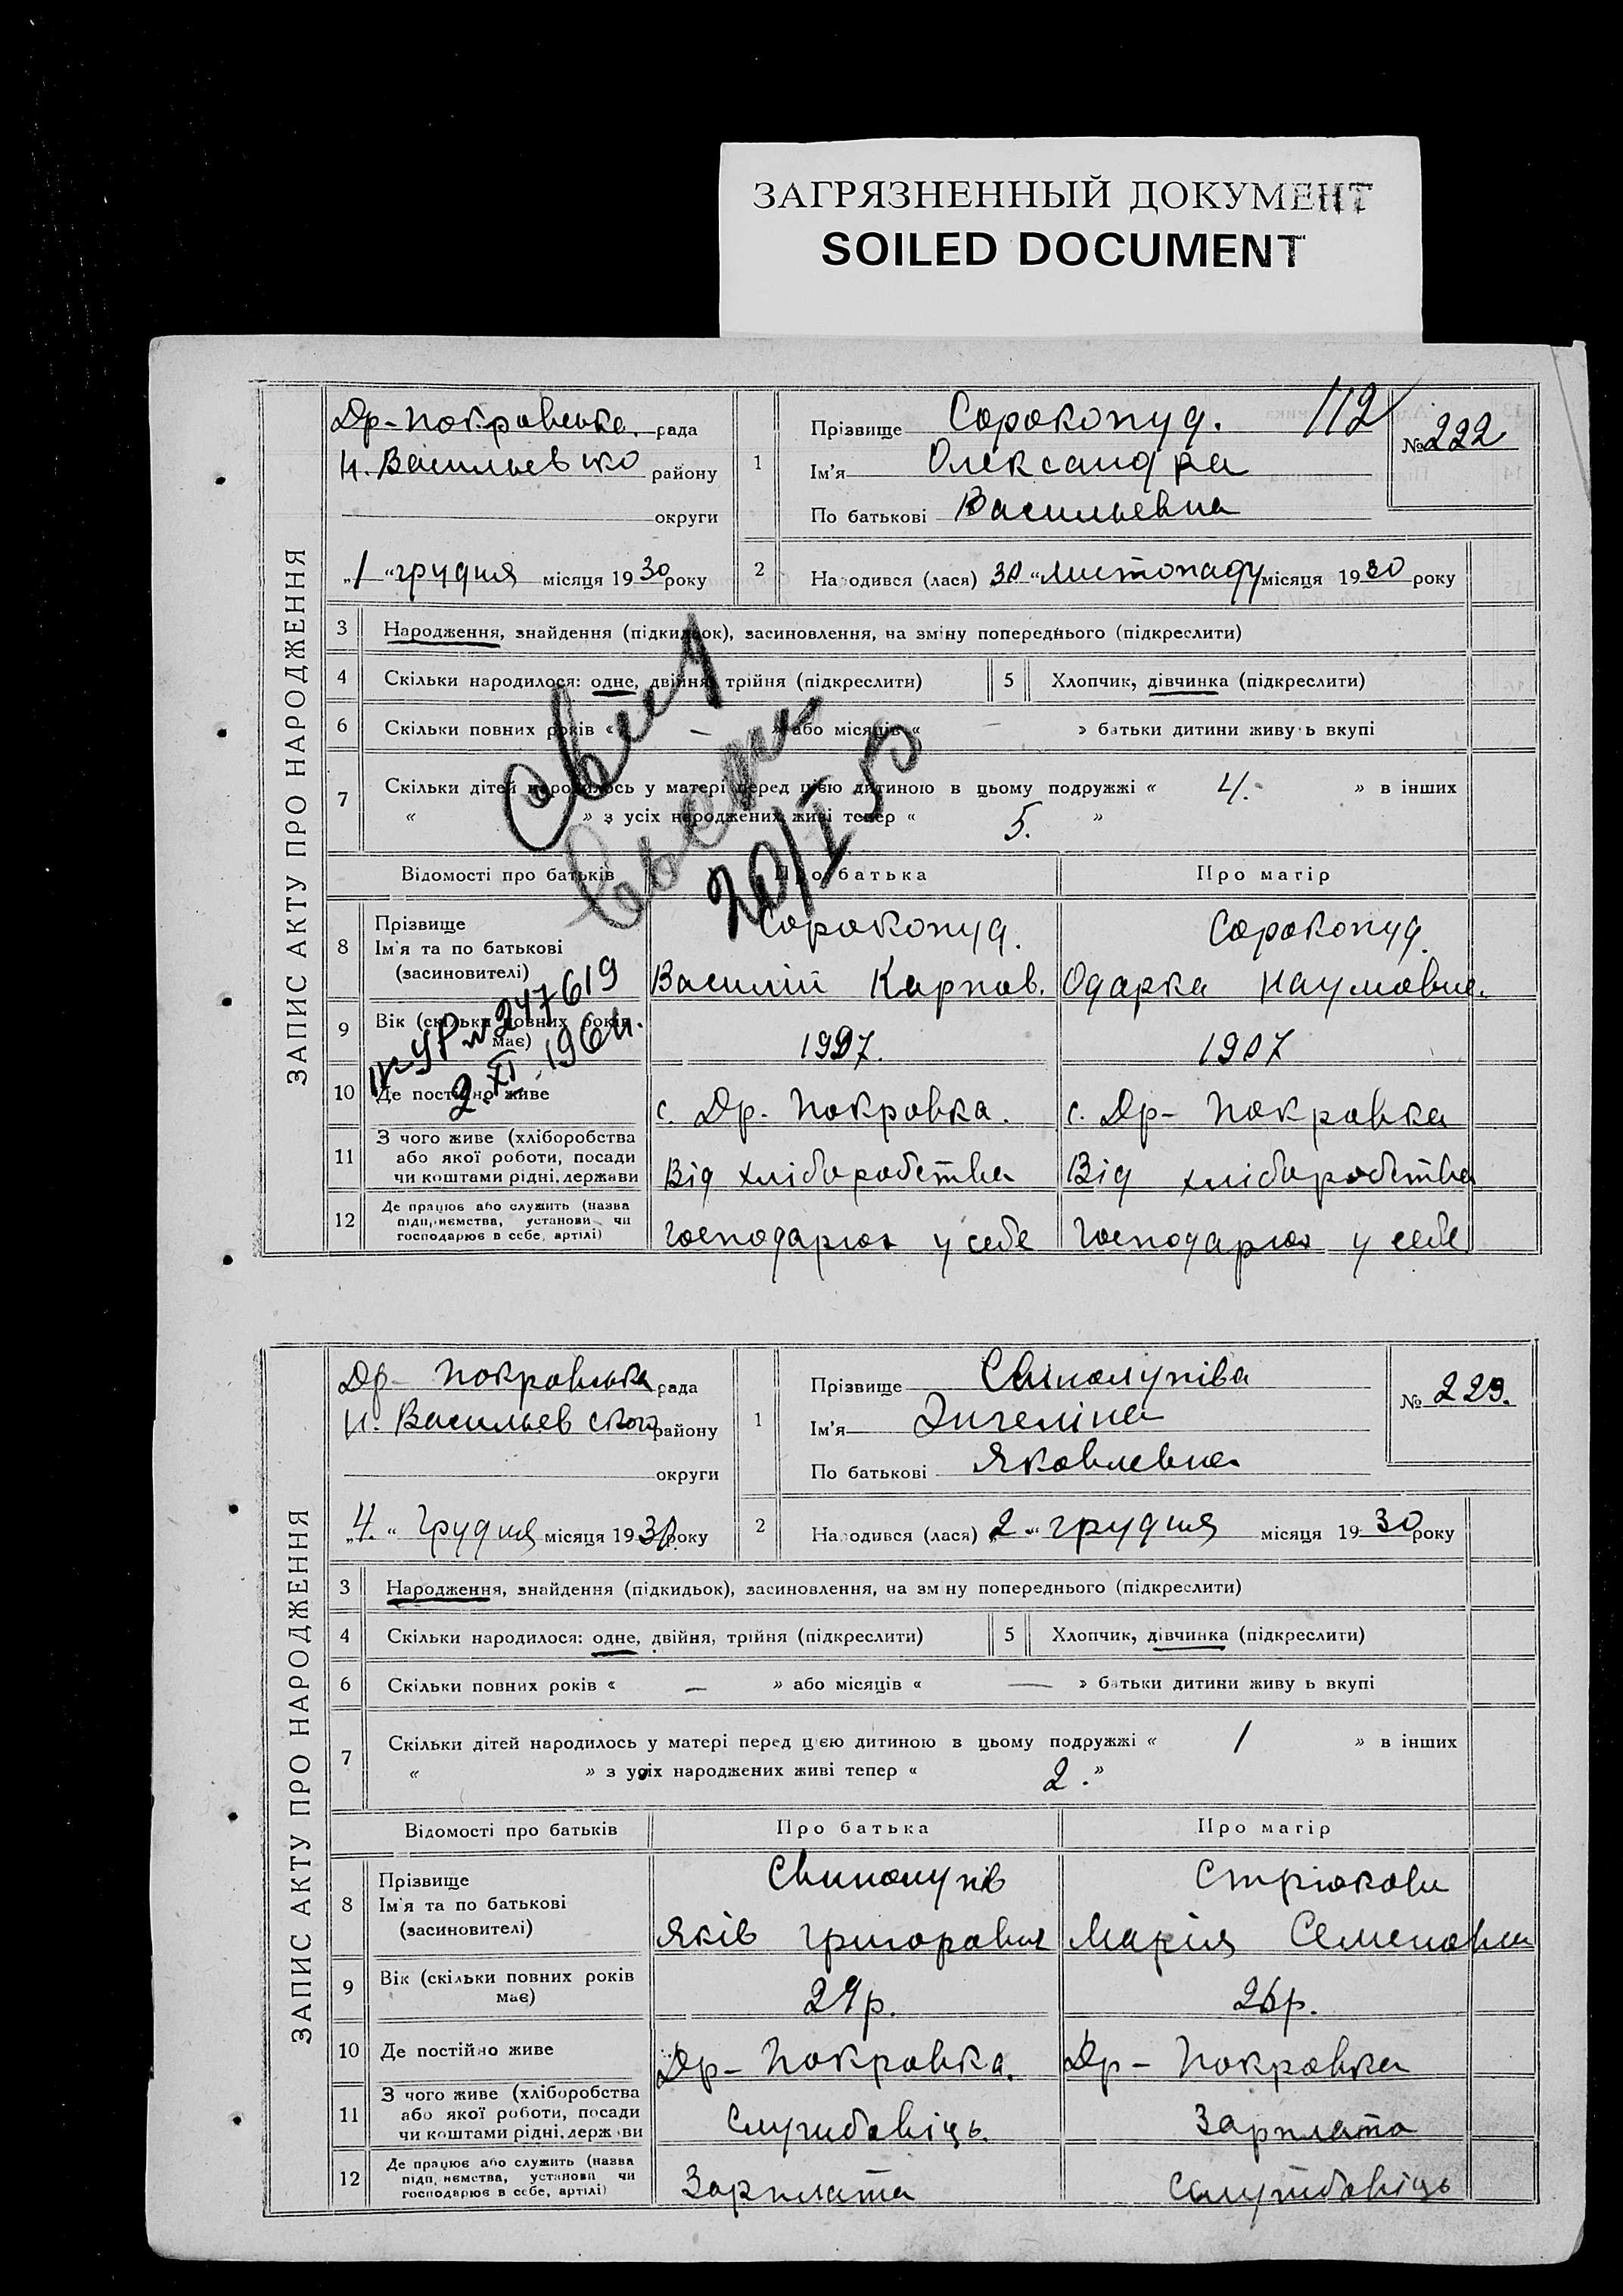 ЗАГРЯЗНЕННЫЙ ДОКУМЕНТ
SOILED DOCUMENT
ЗАПИС АКТУ ПРО НАРОДЖЕННЯ
Др-Покровська рада
Н. Васильевско району
округи
„1“ грудня місяця 1930 року
1
Прізвище Сорокопуд. 112
Ім'я Олександра
По батькові Васильевна
№ 222
2
Народився (лася) 30 “ листопаду місяця 1930 року
3 Народження, знайдення (підкидьок), засиновлення, на зміну попереднього (підкреслити)
4 Скільки народилося: одне, двійня, трійня (підкреслити) 5 Хлопчик, дівчинка (підкреслити)
6 Скільки повних років « — » або місяців « — » батьки дитини живуть вкупі
7 Скільки дітей народилось у матері перед цією дитиною в цьому подружжі « 4. » в інших
« » з усіх народжених живі тепер « 5. »
20/I 50
Відомості про батьків Про батька Про матір
8 Прізвище Ім'я та по батькові (засновителі)
Сорокопуд. Сорокопуд.
Василій Карпов. Одарка Наумовна.
№ 247619
2.XI.1964.
9 Вік (скільки повних років має) 1907
10 Де постійно живе с. Др. Покровка. с. Др- Покровка
11 З чого живе (хліборобства або якої роботи, посади чи коштами рідні, держави Від хліборобства Від хліборобства
12 Де працює або служить (назва підприємства, установи чи господарює в себе, артілі) Господарює у себе Господарює у себе
ЗАПИС АКТУ ПРО НАРОДЖЕННЯ
Др- Покровська рада
Н. Васильевського району
округи
„4.“ Грудня місяця 1930 року
1
Прізвище Свинолупіва
Ім'я Энгеліна
По батькові Яковлевна
№ 223.
2
Народився (лася) „2“ грудня місяця 1930 року
3 Народження, знайдення (підкидьок), засиновлення, на зм ну попереднього (підкреслити)
4 Скільки народилося: одне, двійня, трійня (підкреслити) 5 Хлопчик, дівчинка (підкреслити)
6 Скільки повних років « — » або місяців « — » батьки дитини живу ь вкупі
7 Скільки дітей народилось у матері перед цією дитиною в цьому подружжі « 1 » в інших
« » з усіх народжених живі тепер « 2. »
Відомості про батьків Про батька Про матір
8 Прізвище Ім'я та по батькові (засновителі)
Свинолупів Стрюкова
Яків Григорович Марія Семеновна
9 Вік (скільки повних років має) 29р. 26р.
10 Де постійно живе Др- Покровка. Др- Покровка
11 З чого живе (хліборобства або якої роботи, посади чи коштами рідні, держ ви Службовіць. Зарплата
12 Де працює або служить (назва підп, иємства, установи чи господарює в себе, артілі) Зарплата Службовіць